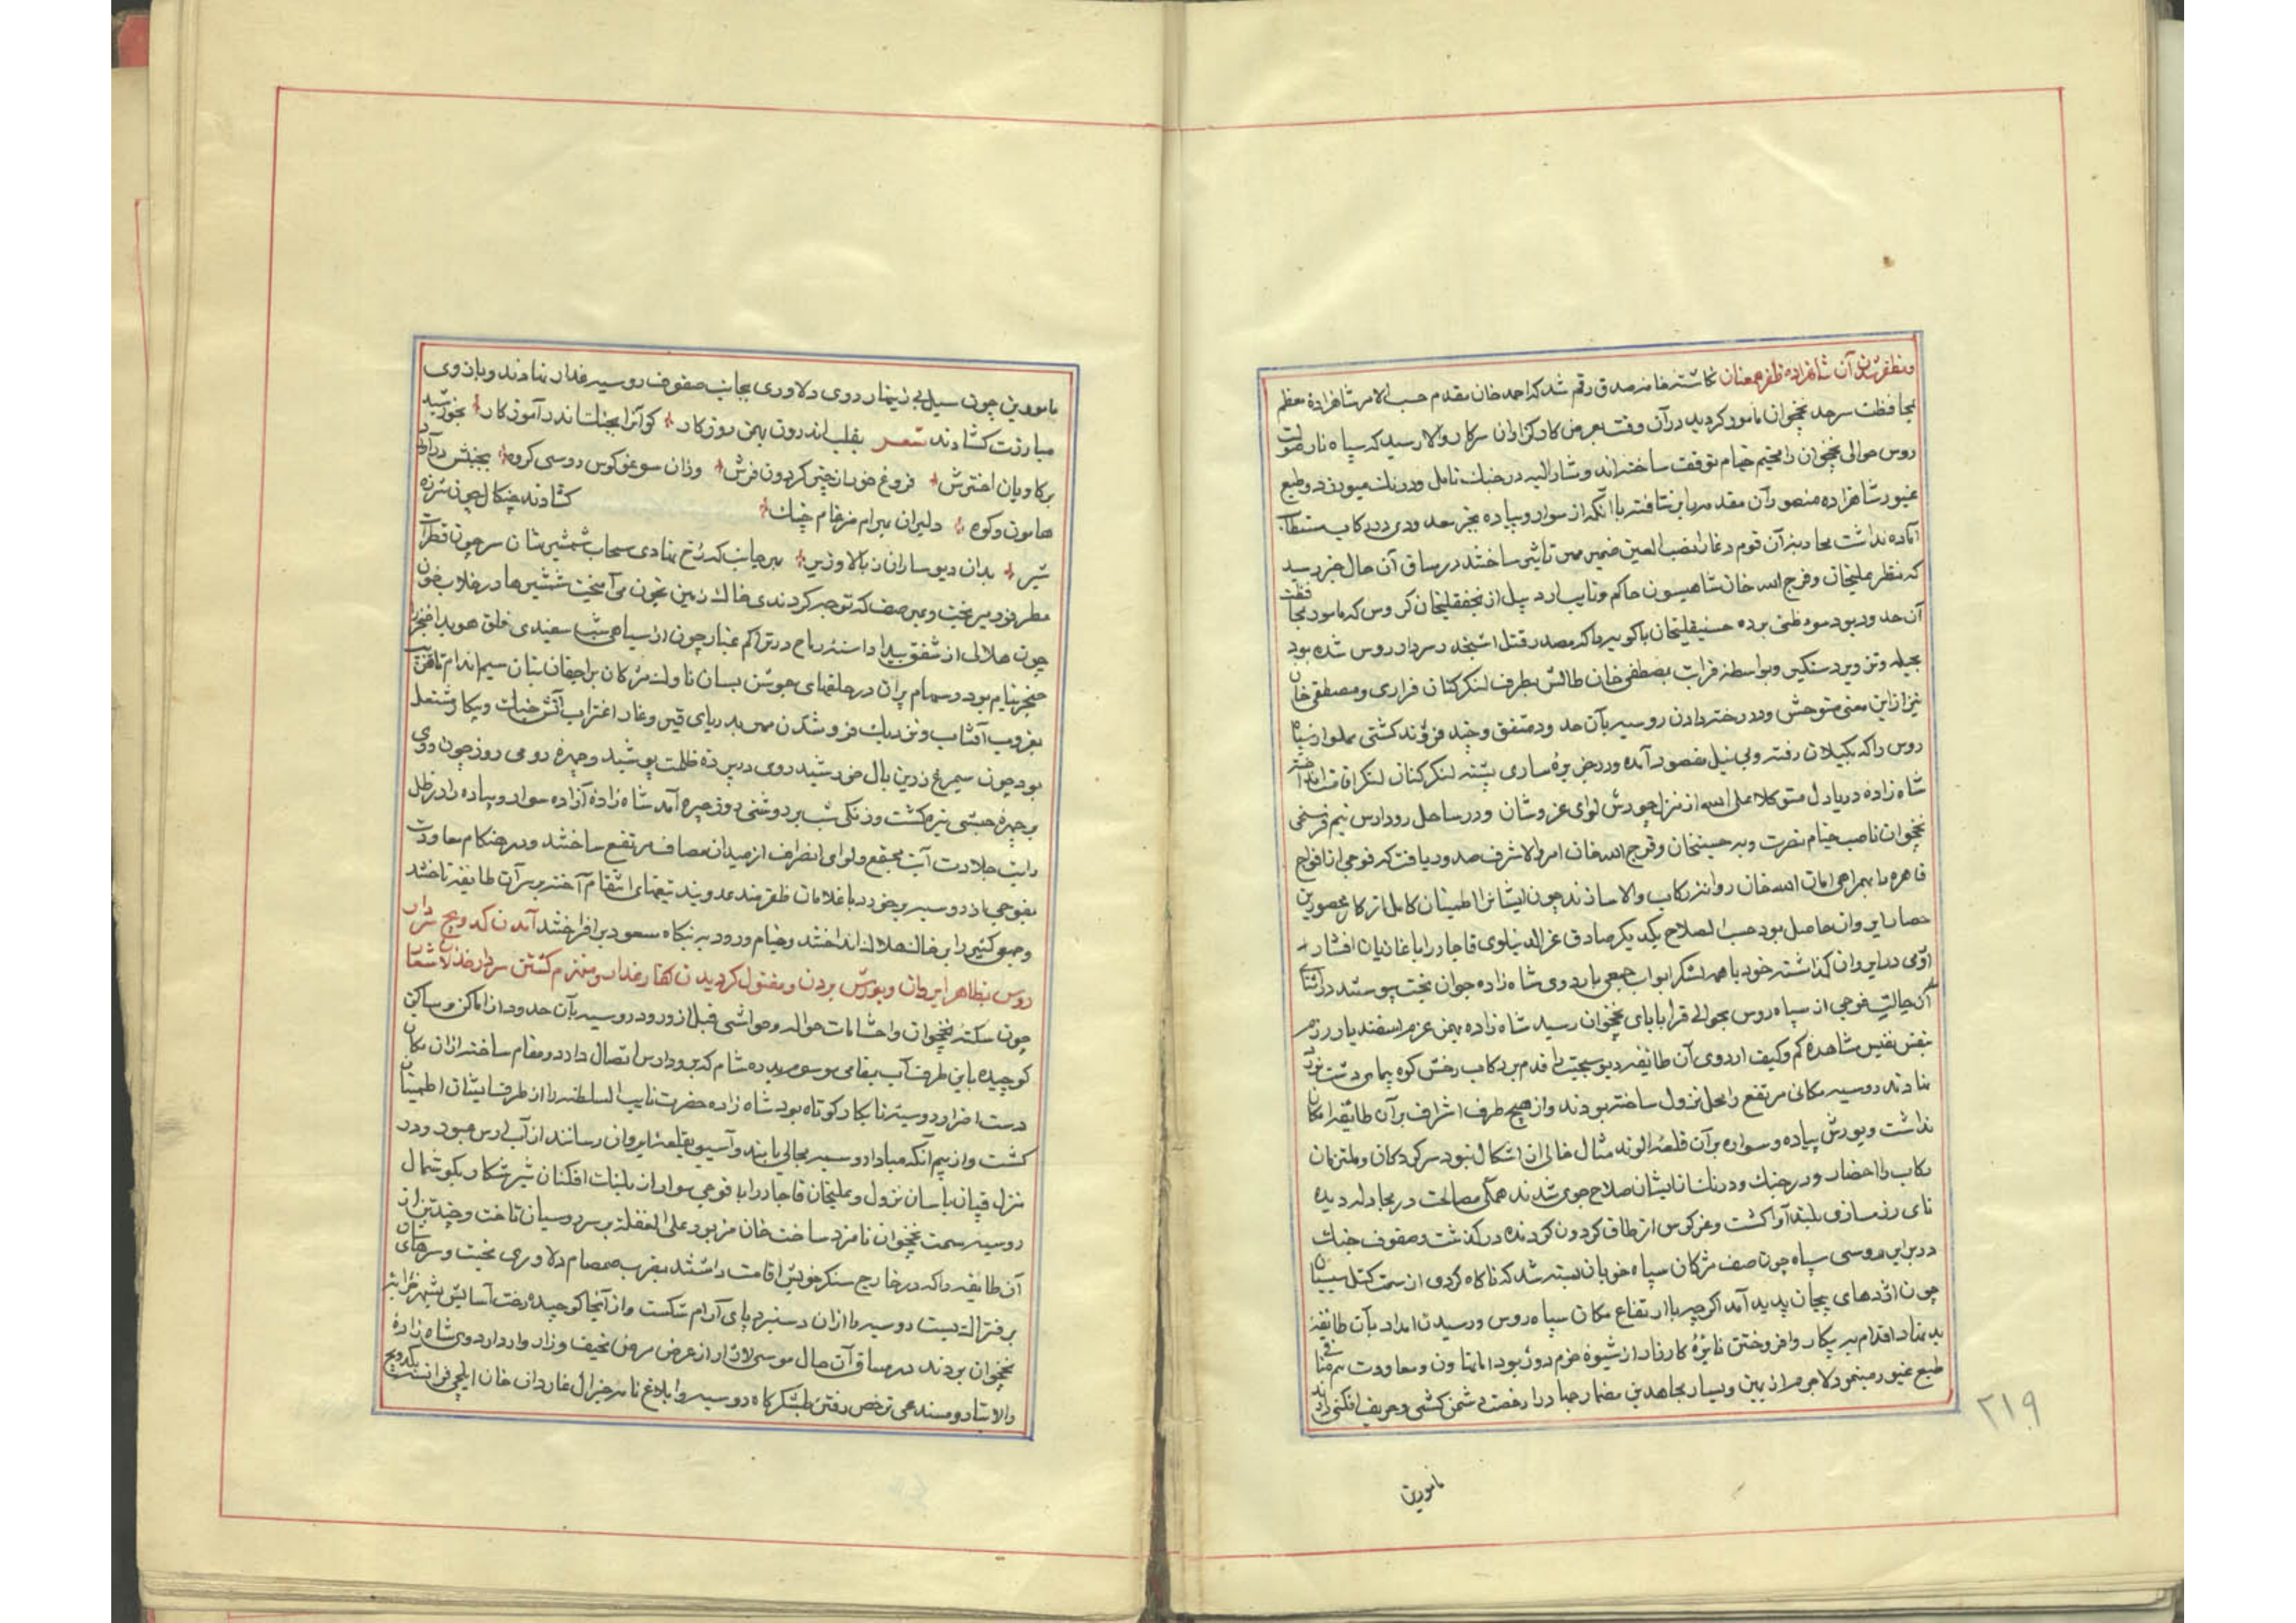 و مظفر شدن آن شاهزاده ظفر همعنان نگاشته خامه صدق رقم شد که احمد خان مقدم حسب الامر شاهزاده معظم
بمحافظت سرحد نخجوان مامور کردید در آن وقت بعرض کارکزاران سرکار والا رسید که سپاه نار صولت
روس حوالی نخجوان را مخیم خیام توقف ساخته اند و مشار الیه در جنک تامل و درنک میورزد و طبع
غیور شاهزاده منصور آن مقدمه را بر نتافته با آنکه از سوار و پیاده بجز معدودی در رکاب مستطاب
آماده نداشت محاربه آن قوم دغا را نصب العین ضمیر مهر تاثیر ساختند در مساق آن حال خبر رسید
که نظر علیخان و فرج الله خان شاهیسون حاکم و نایب اردبیل از نجفقلیخان کروس که مامور بمحافظت
آن حدود بود سوء ظنی برده حسینقلیخان باکویه را که مصدر قتل اشپخدر سردار روس شده بود
بحیله و تزویر دستکیر و بواسطه قرابت مصطفی خان طالش بطرف لنکرکنان فراری و مصطفی خان
نیز از این معنی متوحش و در دختر دادن روسیه بآن حدود متفق و چند فروند کشتی مملو از سپاه
روس را که بکیلان رفته و بی نیل مقصود آمده و در جزیره ساری بسته لنکرکنان لنکر اقامت انداختند
شاه زاده دریا دل متوکلا علی الله از منزل چورش لوای عز و شان و در ساحل رود ارس نیم فرسخی
نخجوان ناصب خیام نصرت و بر حسینخان و فرج الله خان امر والا شرف صدور یافت که فوجی از افواج
قاهره را بهمراهی امان الله خان روانه رکاب والا سازند چون ایشانرا اطمینان کامل از کار محصورین
حصار ایروان حاصل بود حسب الصلاح یکدیکر صادق عز الدینلوی قاجار را با غازیان افشار
ارومی در ایروان کذاشته خود با همه لشکر ابواب جمعی باردوی شاه زاده جوان بخت پیوستند در اثنای
آن حالت فوجی از سپاه روس بحوالی قرا بابای نخجوان رسید شاه زاده بهمن عزم اسفندیار رزم
بنفس نفیس مشاهده کم و کیف اردوی آن طایفه دیو سجیت را قدم بر رکاب رخش کوه پیمای دشت نورد
نهادند روسیه مکانی مرتفع را محل نزول ساخته بودند و از هیچ طرف اشراف بر آن طایفه امکان
نداشت و یورش پیاده و سواره بر آن قلعه الوند مثال خالی از اشکال نبود سرکردکان و ملتزمان
رکاب را احضار و در جنک و درنک از ایشان صلاح جوی شدند همکی مصالحت در مجادله دیده
نای رزمسازی بلند آوا کشت و غو کوس از طاق کردون کردنده در کذشت و صفوف جنک
در برابر روسی سپاه چون صف مژکان سپاه خوبان بسته شد که ناکاه کردی از سمت کتل بیبیان
چون اژدهای پیچان پدید آمد اکرچه با ارتفاع مکان سپاه روس و رسیدن امداد بآن طایفه
بد نهاد اقدام بر پیکار و افروختن نایره کارزار از شیوه حزم دور بود اما تهاون و معاودت هم منافی
طبع غیور مینمود لاجرم از یمین و یسار مجاهدین مضمار جهاد را رخصت دشمن کشی و حریف افکنی دادند
مامورین
۲۱۹
مامورین چون سیل بی زینهار روی دلاوری بجانب صفوف روسیه غدار نهادند و بازوی
مبارزت کشادند شعر بقلب اندرون بهمن روزکار کو آنرا بجنک اندر آموزکار بخورشید
بر کاویان اخترش فروغ خور از چتر کردون فرش وزان سو غو کوس روسی کروه بجنبش درآورد
هامون و کوه دلیران بهرام ضرغام چنک کشادند چنکال چون شرزه
شیر بدان دیو ساران ز بالا و زیر بهر جانب که رخ نهادی سحاب شمشیرشان سر چون قطرات
مطر فرو میریخت و بهر صف که توجه کردندی خاک زمین بخون می آمیخت شمشیرها در خلاب خون
چون هلالی از شفق پیدا و اسنه رماح در تراکم غبار چون از سیاهی شب سفیدی فلق هویدا خنجر از
خنجر نیام بود و سهام پران در حلقهای جوشن بسان ناوک مژکان بر اجفان بتان سیم اندام تا قریب
بغروب آفتاب و نزدیک فرو شدن مهر بدریای قیر وغا را اضطراب آتش جنک و پیکار مشتعل
بود چون سیمرغ زرین بال خورشید روی در پرده ظلمت پوشید و چهره رومی روز چون روی
بر چهره حبشی تیره کشت و زنکی شب بر روشنی روز چیره آمد شاه زاده آزاده سوار و پیاده را در ظل
رایت جلادت آیت مجتمع و لوای انصراف از میدان مصاف مرتفع ساختند و در هنکام معاودت
بفوجی از روسیه برخورد با غلامان ظفرمند عدوبند تیغهای انتقام آخته بر سر آن طایفه تاختند
و جمعی کثیر را بر خاک هلاک انداختند و خیام ورود به بنکاه مسعود بر افراختند آمدن کدویچ سردار
روس بظاهر ایروان و یورش بردن و مقتول کردیدن کفار غدار و منهزم کشتن سردار خذلان شعار
چون سکنه نخجوان و احشامات حوالی و حواشی قبل از ورود روسیه بآن حدود از اماکن و مساکن
کوچیده باین طرف آب بمقامی موسوم بدره شام که برود ارس اتصال دارد و مقام ساخته از آن مکان
دست اضرار روسیه نابکار کوتاه بود شاه زاده حضرت نایب السلطنه را از طرف ایشان اطمینان
کشت و از بیم آنکه مبادا روسیه مجالی یابند و آسیبی بقلعه ایروان رسانند از آب ارس عبور و در
منزل قپان باسان نزول و علیخان قاجار را با فوجی سواران پلنک افکنان شیر شکار بکوشمال
روسیه سمت نخجوان نامزد ساخت خان مزبور علی الغفله بر سر روسیان تاخت و چند تن از
آن طایفه را که در خارج سنکر خویش اقامت داشتند بضرب صمصام دلاوری بخت و سرهای
بر فتراک بست روسیه را از آن دستبرد پای آرام شکست و از آنجا کوچیده رخت آسایش بشهر
نخجوان بردند در مساق آن حال موسی لاژار از عرض مرض نحیف و زار وارد اردوی شاه زاده
والاتبار و مستدعی ترخص رفتن بلشکرکاه روسیه و ابلاغ نامه جنرال غاردان خان ایلچی فرانسه بکدویچ